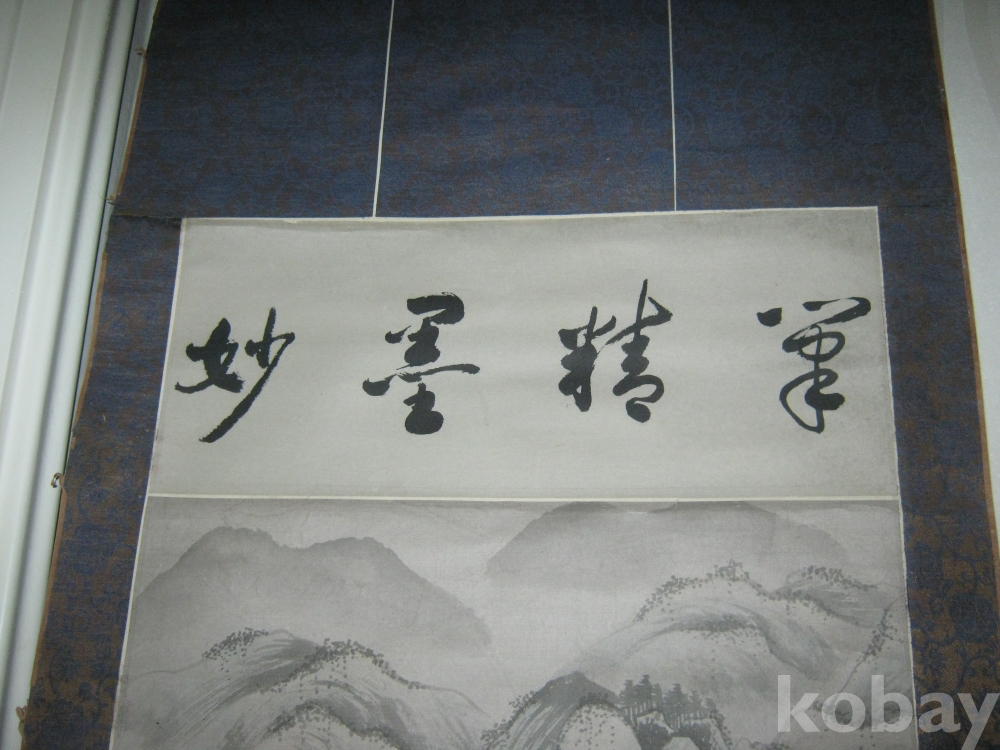 筆精墨妙
kobay